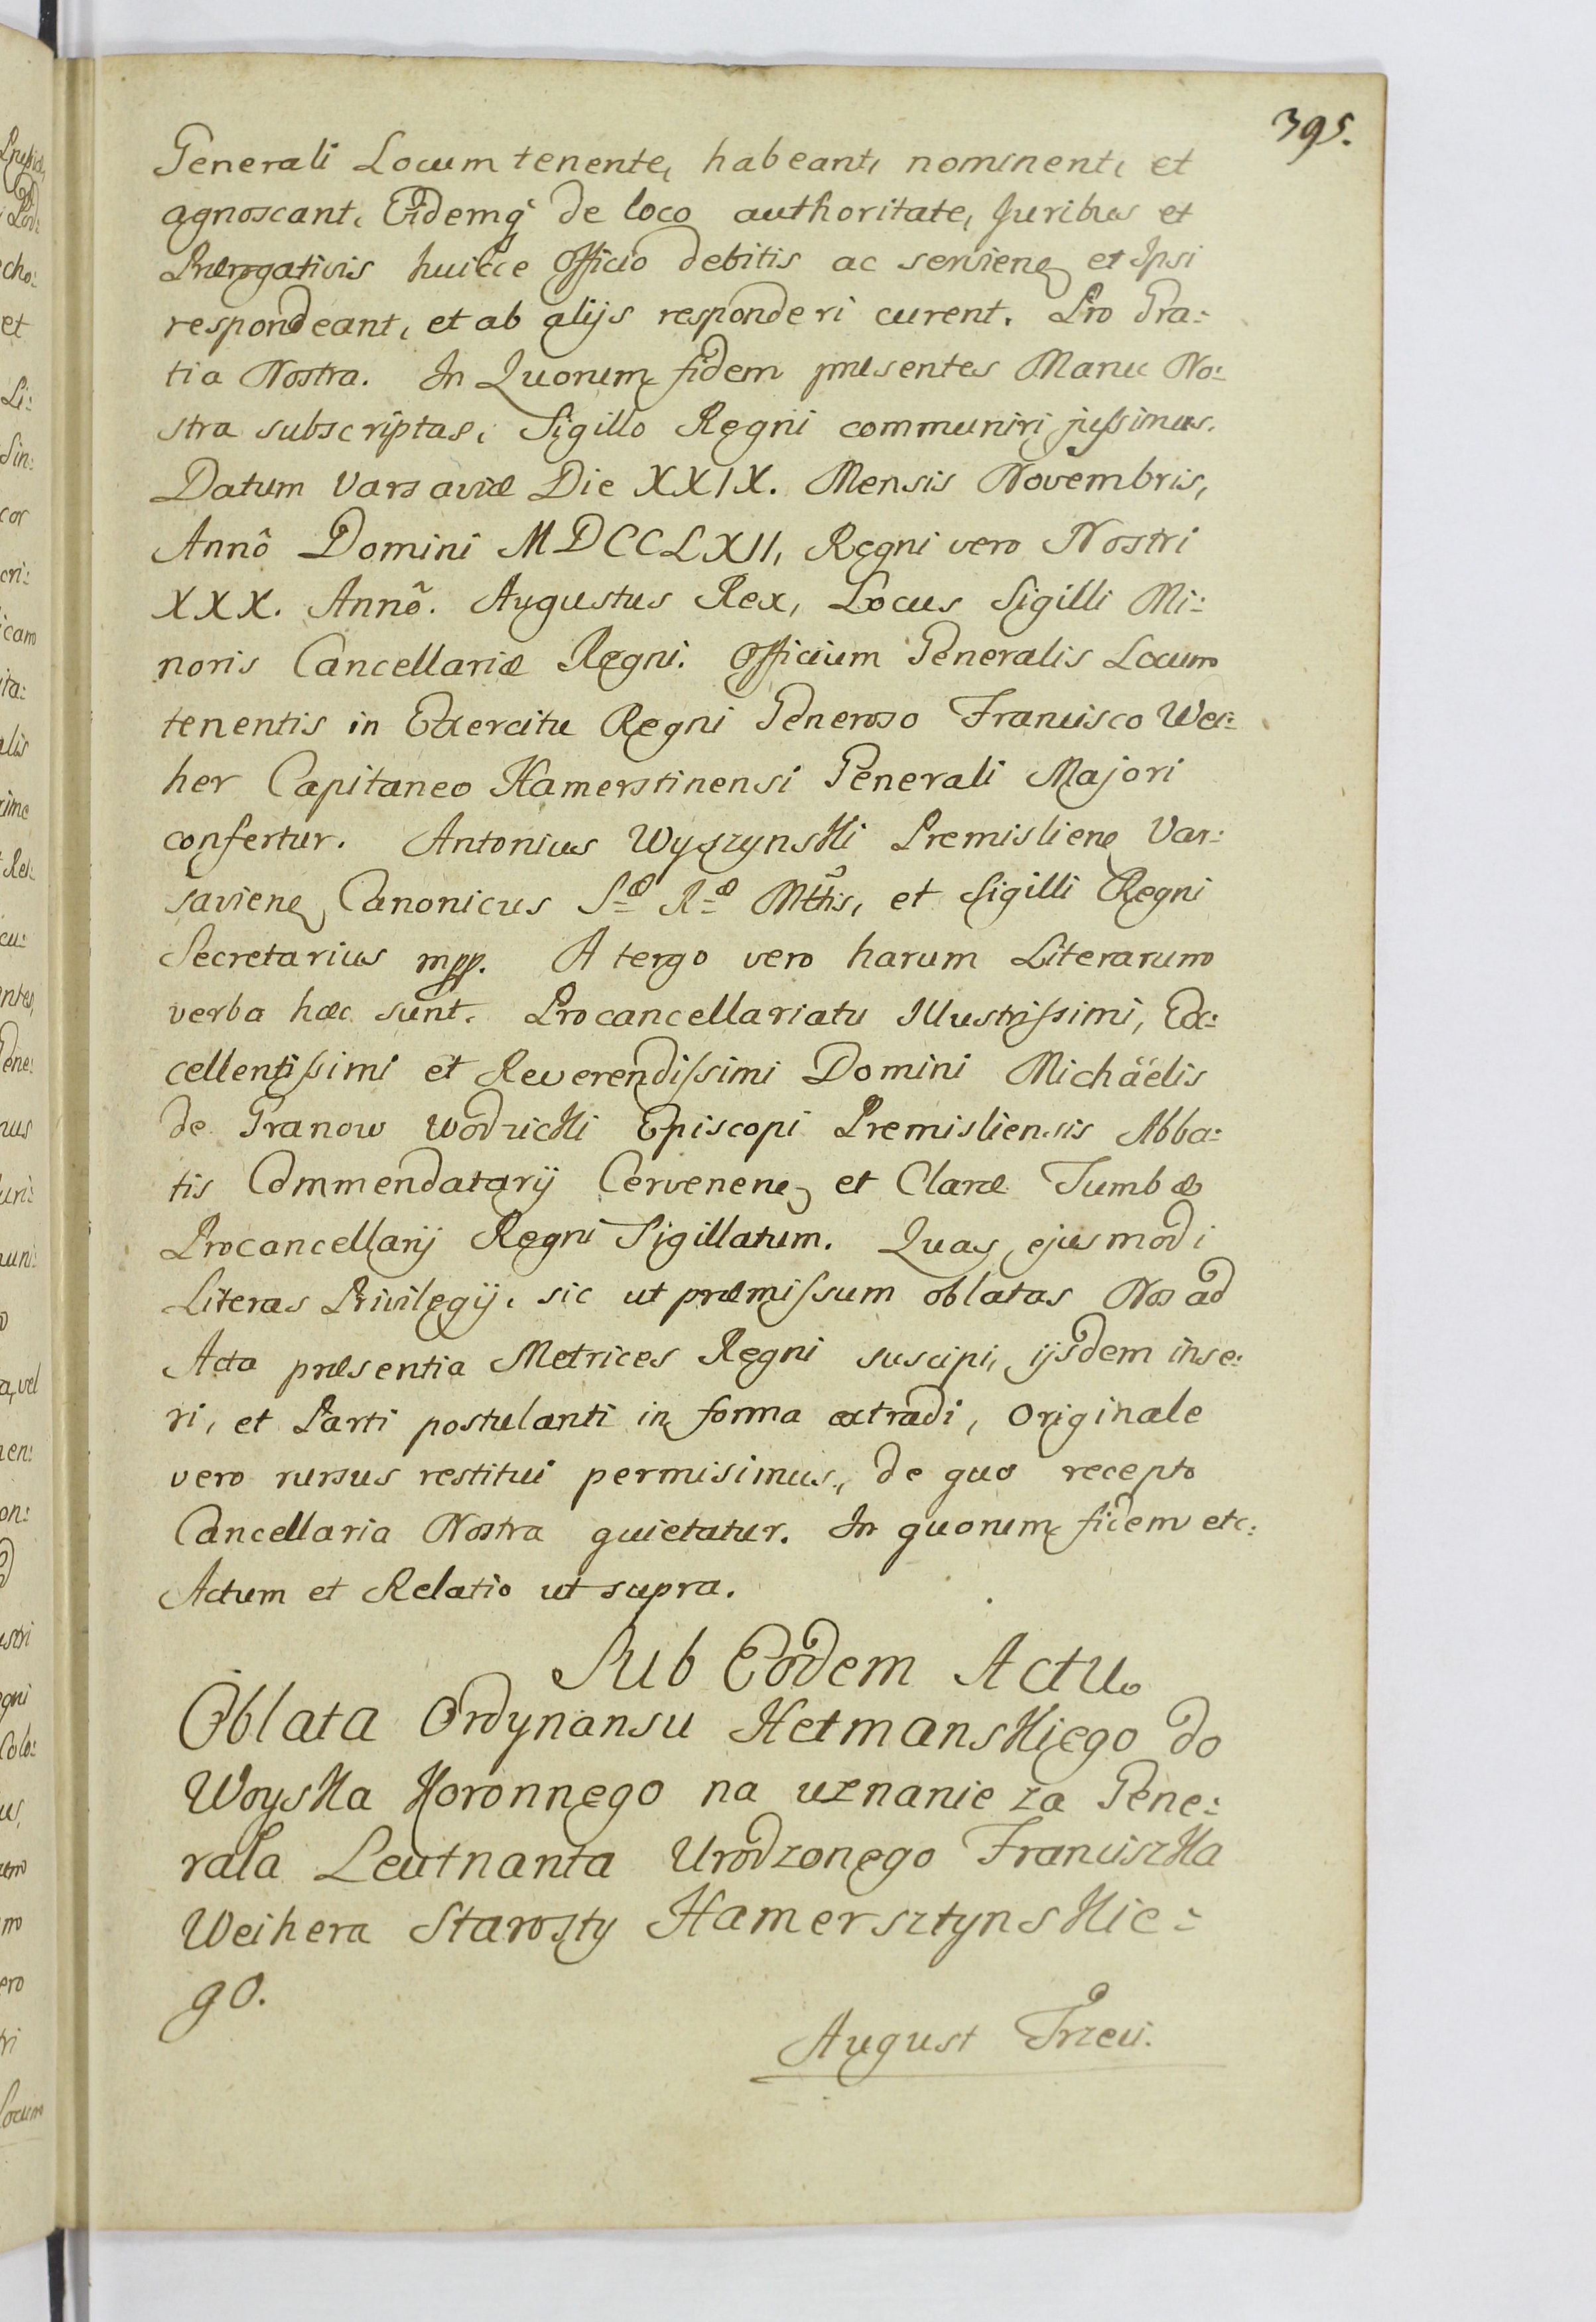 395.
Generali Locum tenente, habeant, nominent, et
agnoscant, Eidemq de loco authoritate, Juribus et
Prærogativis huicce Officio debitis ac servien et Ipsi
respondeant, et ab alijs responderi curent. Pro Gra:
tia Nostra. In Quorum fidem præsentes Manu No:
stra subscriptas, Sigillo Regni communiri jussimus.
Datum Varsaviæ Die XXIX. Mensis Novembris,
Annô Domini MDCCLXII, Regni vero Nostri
XXX. Annô. Augustus Rex, Locus Sigilli Mi:
noris Cancellariæ Regni. Officium Generalis Locum
tenentis in Exercitu Regni Generoso Francisco Wei:
her Capitaneo Hamerstinensi Generali Majori
confertur. Antonius Wyszynski Premislien Var:
savien Canonicus S. R. Mttis, et Sigilli Regni
Secretarius mpp. A tergo vero harum Literarum
verba hæc sunt. Procancellariatu Illustrissimi, Ex:
cellentissimi et Reverendissimi Domini Michäelis
de Granow Wodzicki Episcopi Premisliensis Abba:
tis Commendatarij Cervenen et Claræ Tumbæ
Procancellarij Regni Sigillatum. Quas ejusmodi
Literas Privilegij, sic ut præmissum oblatas Nos ad
Acta præsentia Metrices Regni suscipi, ijsdem inse:
ri, et Parti postulanti in forma extradi, Originale
vero rursus restitui permisimus, de quo recepto
Cancellaria Nostra quietatur. In quorum fidem etc:
Actum et Relatio ut supra.
Sub Eodem Actu.
Oblata Ordynansu Hetmanskiego do
Woyska Koronnego na uznanie za Gene:
rala Leutnanta Urodzonego Franciszka
Weihera Starosty Hamersztynskie:
go.
August Trzeci.